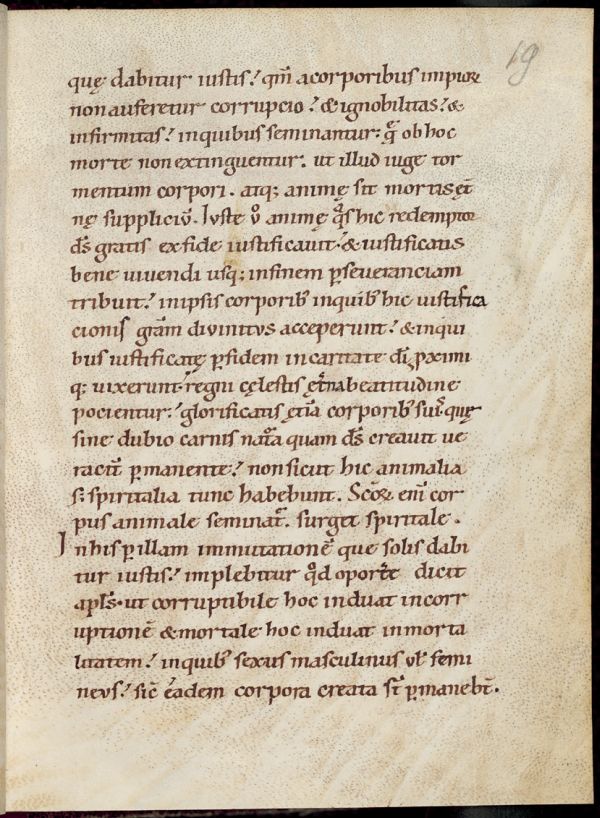 19
quę dabitur iustis? qm̄ a corporibus impioꝝ
non auferetur corrupcio? & ignobilitas? &
infirmitas? in quibus seminantur: qͣ ob hoc
morte non extinguentur. ut illud iuge tor
mentum corpori. atq; animę sit mortis ęt̄
nę suppliciū. Iuste ů animę qͦs hic redemptor
ds̄ gratis ex fide iustificauit. & iustificatis
bene uiuendi usq; in finem ꝑseueranciam
tribuit? in ipsis corporib; in quib; hic iustifica
cionis grām diuinitus acceperunt? & in qui
bus iustificatę ꝑ fidem in caritate dī & ꝓximi
q; uixerunt? regni cęlestis ęt̄na beatitudine
pocientur: glorificatis ętiā corporib; suis. quę
sine dubio carnis natͣa quam ds̄ creauit ue
raciť ꝑmanente? non sicut hic animalia
s; spiritalia tunc habebunt. Scōꝝ eni͂ cor
pus animale seminat̃. surget spiritale.
In his ꝑ illam immutationē que solis dabi
tur iustis? implebitur qͦd oportere dicit
apls̄. ut corruptibile hoc induat incorr
uptionē & mortale hoc induat inmorta
litatem? in quib; sexus masculinus ul̃ femi
neus? sic̄ eadem corpora creata st̄ ꝑmaneb̄t.